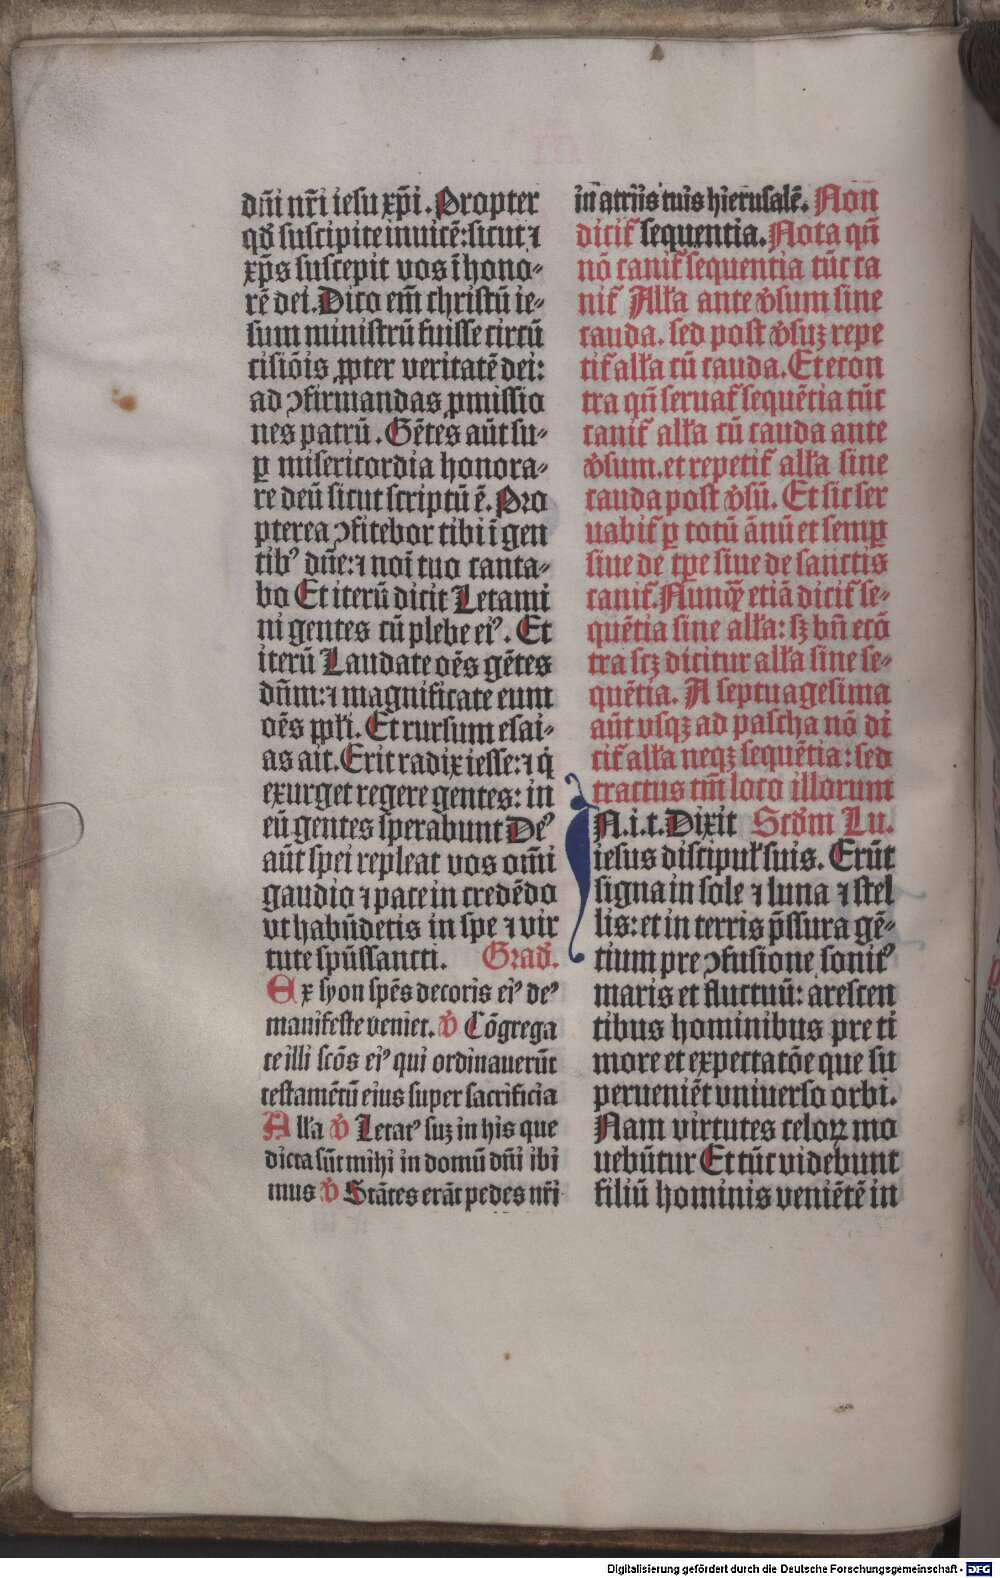 dn̄i nr̄i iesu xp̄i. Propter
qđ suscipite inuicē: sicut ⁊
xp̄s suscepit vos ī hono-
rē dei. Dico em̄ christū ie-
sum ministrū fuisse circū
cisiōis ꝓpter veritatē dei:
ad ꝯfirmandas ꝓmissio
nes patrū. Gētes aūt su-
ꝑ misericordia honora-
re deū sicut scriptū ē. Pro
pterea ꝯfitebor tibi ī gen
tibꝰ dn̄e: ⁊ noī tuo canta-
bo Et iterū dicit Letami
ni gentes cū plebe eiꝰ. Et
iterū Laudate oēs gētes
dn̄m: ⁊ magnificate eum
oēs ppl̄i. Et rursum esai-
as ait. Erit radix iesse: ⁊ q̇
exurget regere gentes: in
eū gentes sperabunt Deꝰ
aūt spei repleat vos om̄i
gaudio ⁊ pace in credēdo
vt habūdetis in spe ⁊ vir
tute spūssancti. Grad̄.
Ex syon spēs decoris eiꝰ deꝰ
manifeste veniet. ℣ Cōgrega
te illi scōs eiꝰ qui ordinauerūt
testamētū eius super sacrificia
All̄a ℣ Letatꝰ suꝫ in his que
dicta sūt mihi in domū dn̄i ibi
mus ℣ Stātes erāt pedes nr̄i
in atriis tuis hierusalē. Non
dicit̄ sequentia. Nota qn̄
nō canit̄ sequentia tūc ca
nit̄ All̄a ante v̓sum sine
cauda. sed post v̓suꝫ repe
tit̄ all̄a cū cauda. Et econ
tra qn̄ seruat̄ sequētia tūc
canit̄ all̄a cū cauda ante
v̓sum. et repetit̄ all̄a sine
cauda post v̓sū. Et sic ser
uabit̄ ꝑ totū ānū et semꝑ
siue de tp̄e siue de sanctis
canit̄. Nunqꝫ etiā dicit̄ se-
quētia sine all̄a: sꝫ bn̄ ecō
tra scꝫ dicitur all̄a sine se-
quētia. A septuagesima
aūt vsqꝫ ad pascha nō di
cit̄ all̄a neqꝫ sequētia: sed
tractus tm̄ loco illorum
IN. i. t. Dixit Scd̄m Lu.
iesus discipul̄ suis. Erūt
signa in sole ⁊ luna ⁊ stel
lis: et in terris p̄ssura gē-
tium pre ꝯfusione sonitꝰ
maris et fluctuū: arescen
tibus hominibus pre ti
more et expectatōe que su
peruenīēt vniuerso orbi.
Nam virtutes celoꝝ mo
uebūtur Et tūc videbunt
filiū hominis veniētē in
Digitalisierung gefördert durch die Deutsche Forschungsgemeinschaft - DFG